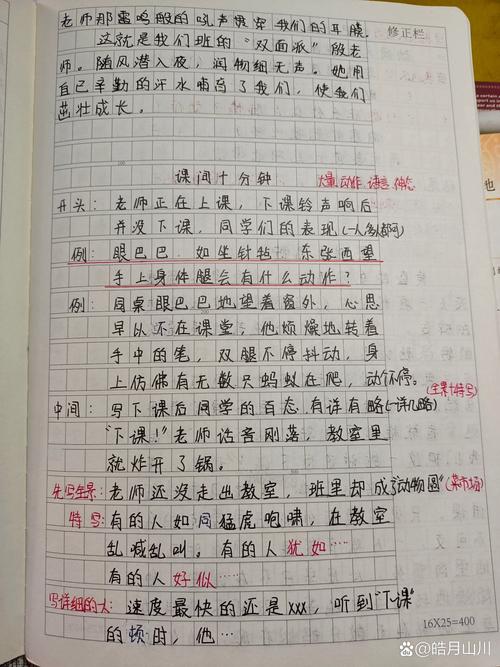 老师那雷鸣般的吼声贯穿我们的耳膜。
修正栏
这就是我们班的“双面派”殷老
师。随风潜入夜，润物细无声。她用
自己辛勤的汗水哺育了我们，使我们
茁壮成长。
课间十分钟
大量动作、语言、神态
开头：老师正在上课，下课铃声响后
并没下课，同学们的表现（一人多人都可）
例：眼巴巴、如坐针毡、东张西望
手上身体腿会有什么动作？
例：同桌眼巴巴地望着窗外，心思
早以不在课堂，他烦燥地转着
手中的笔，双腿不停抖动，身
上仿佛有无数只蚂蚁在爬，动个不停。
（全景+特写）
中间：写下课后同学的百态，有详有略（一详几略）
“下课！”老师话音刚落，教室里
就炸开了锅。
先写全景：老师还没走出教室，班里却成了“动物园”（菜市场）
特写：有的人如同猛虎咆啸，在教室
乱喊乱叫。有的人犹如……
有的人好似……
写详细的人：速度最快的还是xxx，听到“下课”
的顿时，他…
16X25=400
皓月山川